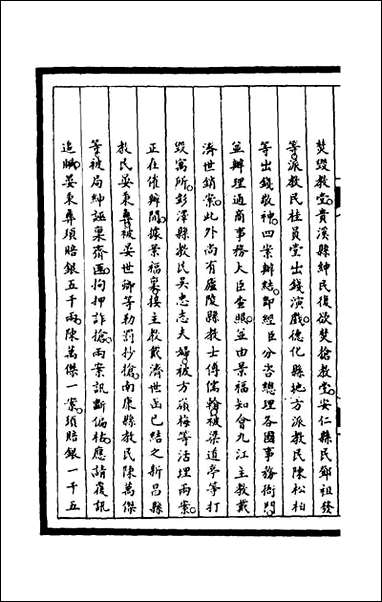 焚毀教堂。貴溪縣紳民復欲焚搶教堂。安仁縣民鄧祖發
等派教民桂員堂出錢演戲。德化縣地方派教民陳松柏
等出錢敬神。四案辦結。卽經臣分咨總理各國事務衙門。
並辦理通商事務大臣查照。並由景福知會九江主教戴
濟世銷案。此外尚有廬陵縣教士傅儒翰。被梁道亭等打
毀寓所。彭澤縣教民吳忠志夫婦。被方嶺梅等活埋兩案。
正在催辦間。據景福稟。接主教戴濟世函已結之新昌縣
教民晏秉彝。被晏世卿等勒罰抄搶。南康縣教民陳萬傑
等。被局紳誣稟齊匪。拘押詐搶。兩案訊斷偏枯。應請覆訊
追贓。晏秉彝須賠銀五千兩。陳萬傑一案。須賠銀一千五